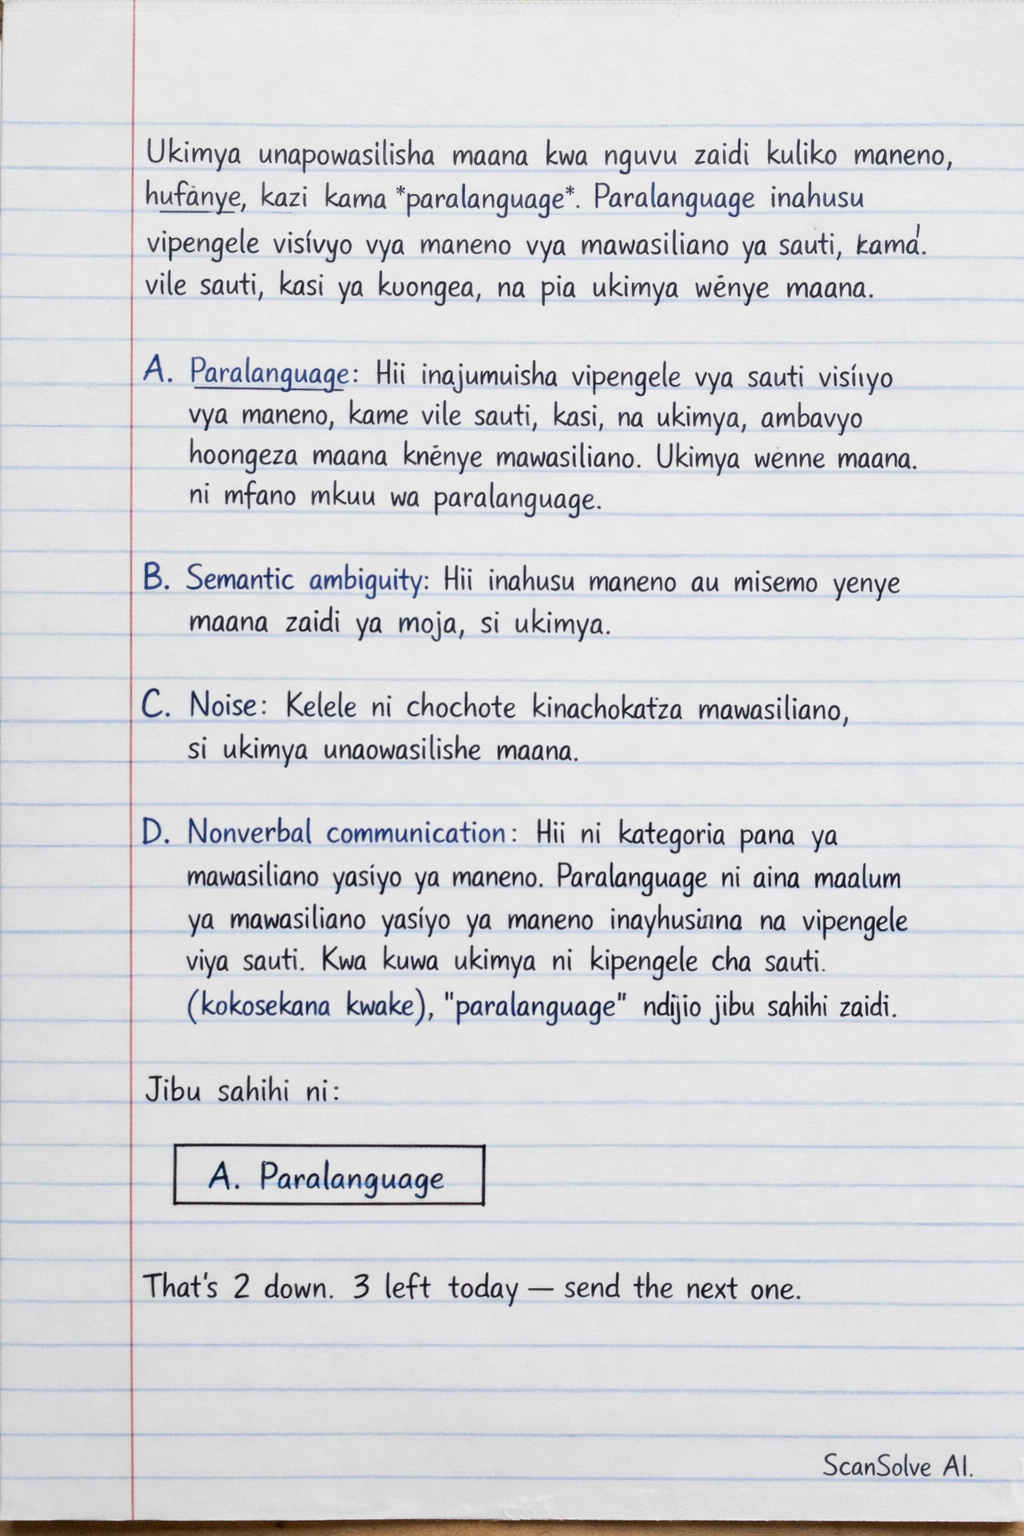 Ukimya unapowasilisha maana kwa nguvu zaidi kuliko maneno,
hufànye, kazi kama *paralanguage*. Paralanguage inahusu
vipengele visívyo vya maneno vya mawasiliano ya sauti, kama'.
vile sauti, kasi ya kuongea, na pia ukimya wénye maana.
A. Paralanguage: Hii inajumuisha vipengele vya sauti
vya maneno, kame vile sauti, kasi, na ukimya, ambavyo
hoongeza maana knénye mawasiliano. Ukimya wenne maana.
ni mfano mkuu wa paralanguage.
B. Semantic ambiguity: Hii inahusu maneno au misemo yenye
maana zaidi ya moja, si ukimya.
C. Noise: Kelele ni chochote kinachokatza mawasiliano,
si ukimya unaowasilishe maana.
D. Nonverbal communication: Hii ni kategoria pana ya
mawasiliano yasíyo ya maneno. Paralanguage ni aina maalum
ya mawasiliano yasíyo ya maneno na vipengele
viya sauti. Kwa kuwa ukimya ni kipengele cha sauti.
(kokosekana kwake), "paralanguage" ndijio jibu sahihi zaidi.
Jibu sahihi ni:
A. Paralanguage
That's 2 down. 3 left today — send the next one.
ScanSolve AI.